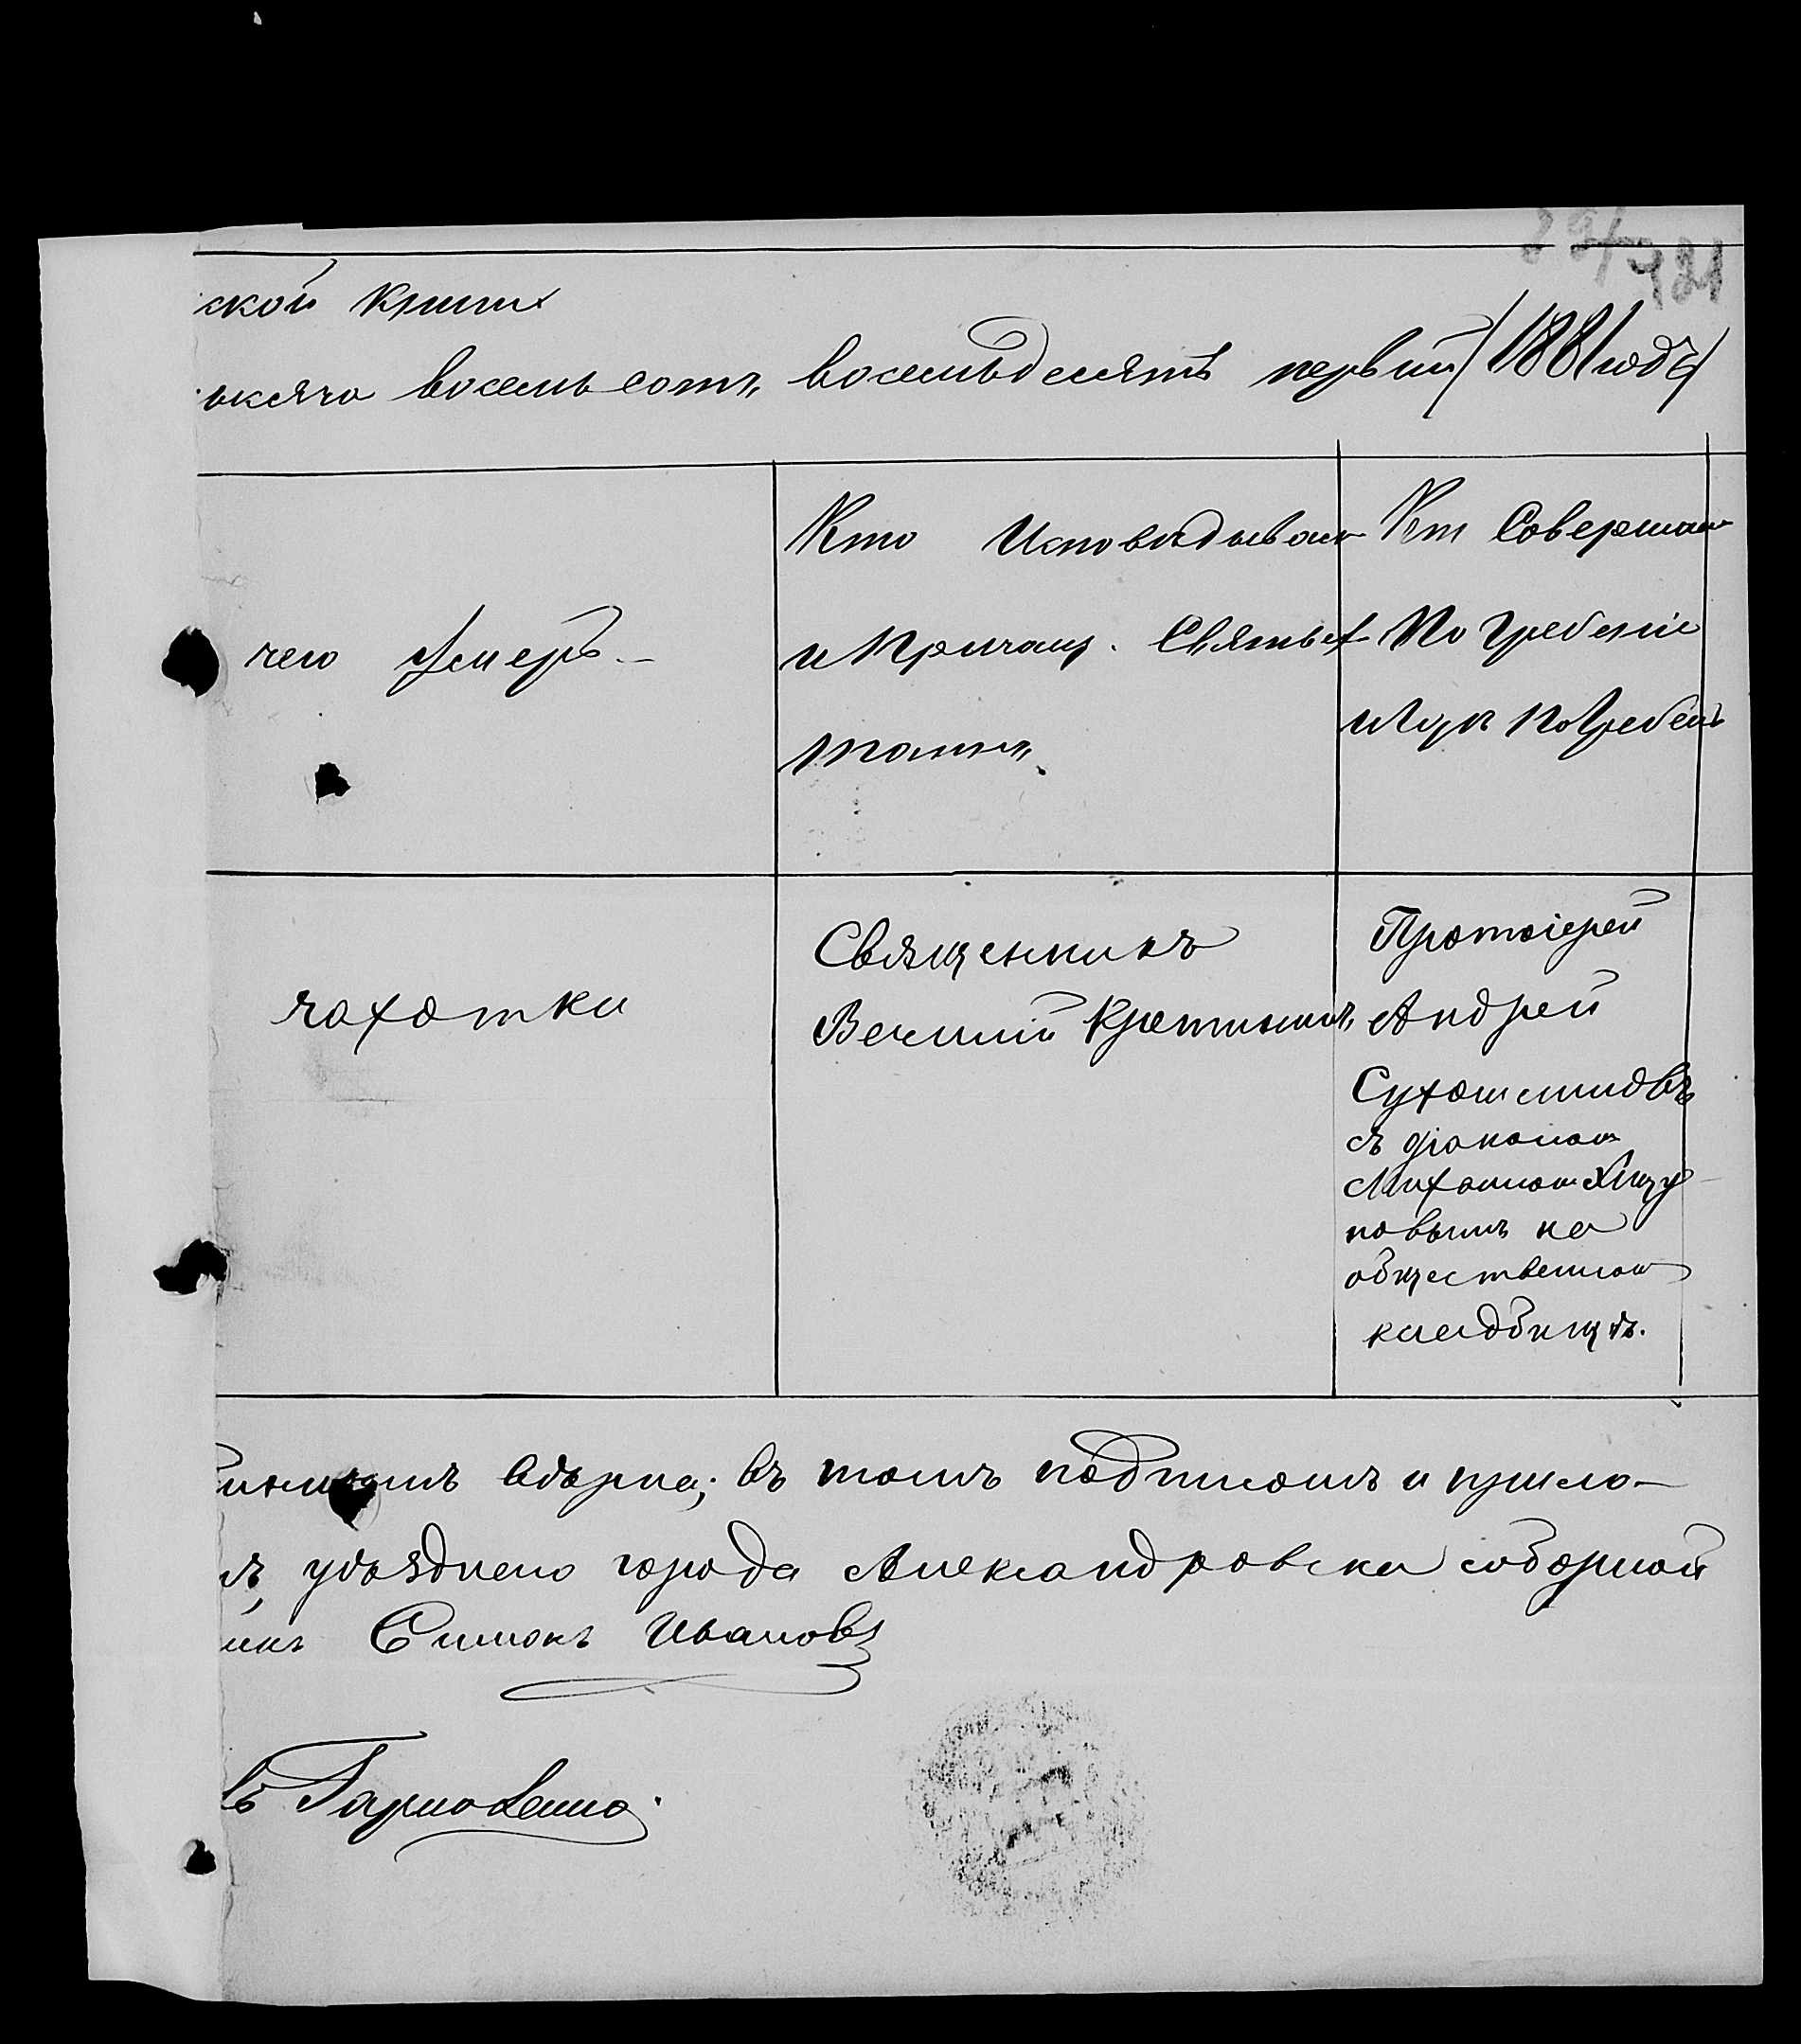 ской книги
ысяча восемь сотъ восемьдесятъ первый /1881 года/
чего умеръ.
Кто Исповѣдывалъ
и Причащ. Святыхъ
Таинъ.
Кто Совершалъ
Погребеніе
и Гдѣ Погребенъ
чахотки
Священникъ
Протоіерей
Андрей
съ діакономъ
Михаиломъ
повымъ на
общественномъ
кладбищѣ.
вѣрна; въ томъ подписомъ и прило-
уѣзднаго города Александровска соборной
икъ Симонъ Ивановъ